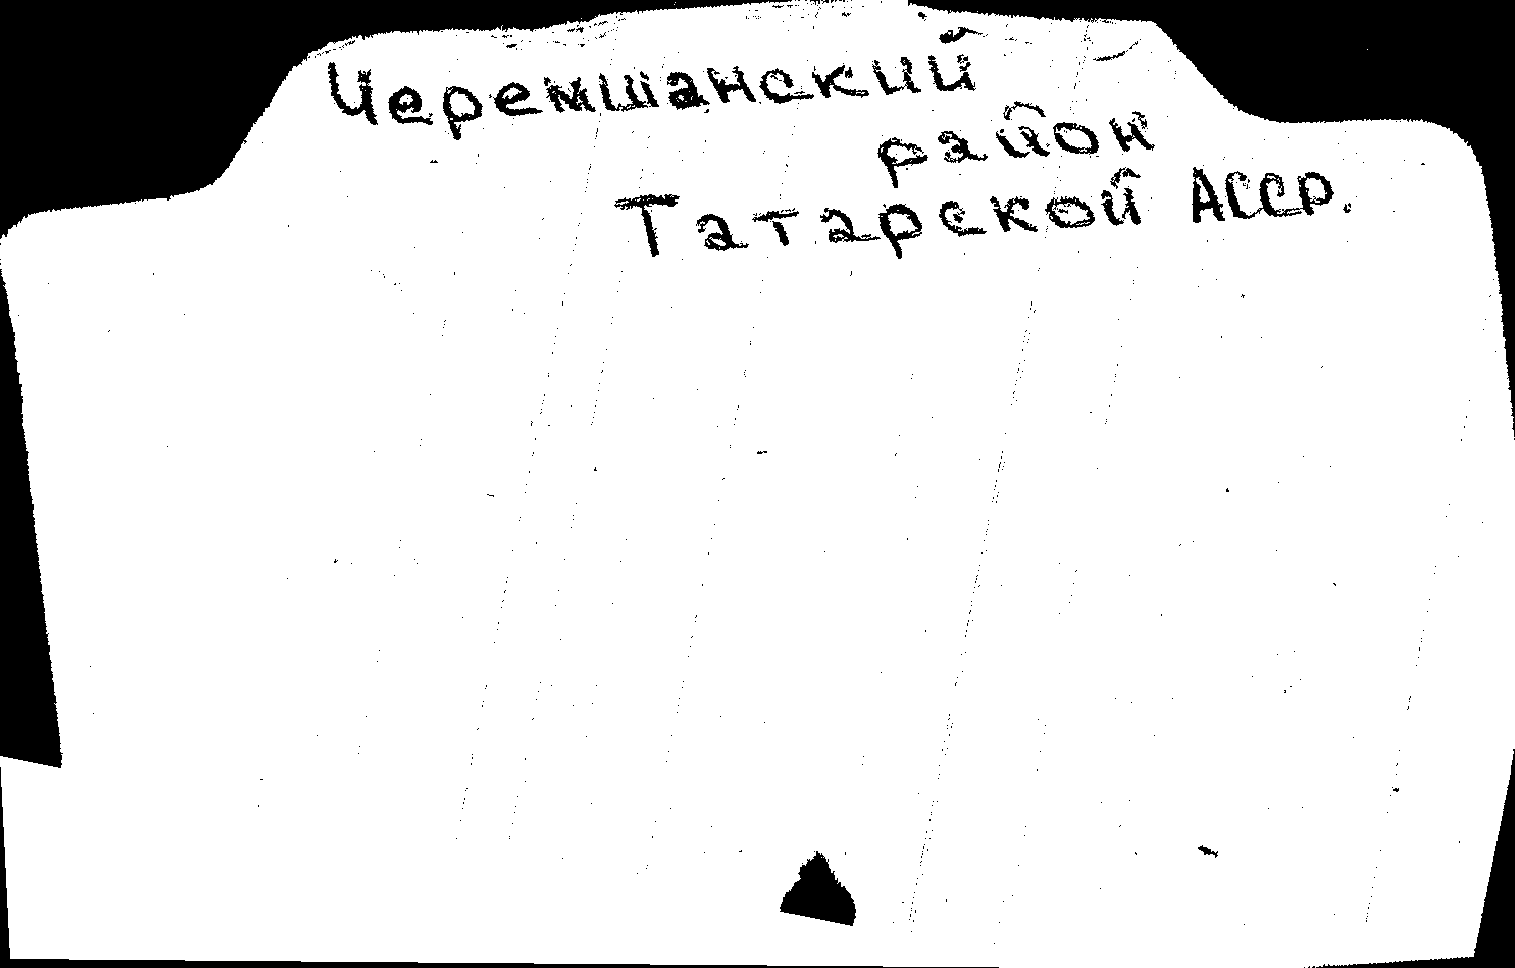 Черемшанский
район
Татарской АССР.